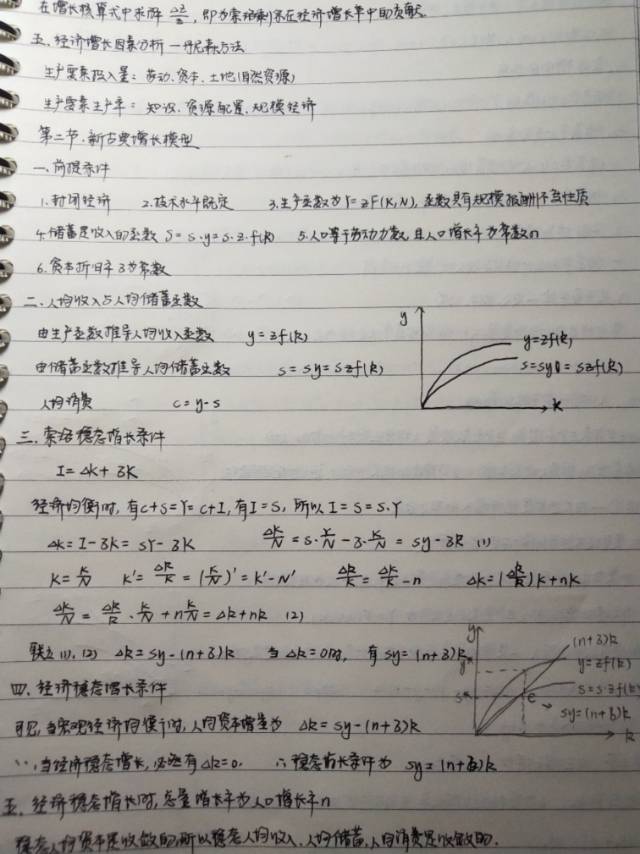 在增长核算式中求解 Δz/z, 即为索洛剩余在经济增长率中的贡献.
五. 经济增长因素分析 — 丹尼森方法
生产要素投入量: 劳动、资本、土地(自然资源)
生产要素生产率: 知识、资源配置、规模经济
第二节. 新古典增长模型
一. 前提条件
1. 封闭经济 2. 技术水平既定 3. 生产函数为 Y=zF(K,N), 函数具有规模报酬不变性质
4. 储蓄是收入的函数 S=s·y=s·z·f(k) 5. 人口等于劳动力数, 且人口增长率为常数n
6. 资本折旧率3为常数
二. 人均收入与人均储蓄函数
由生产函数推导人均收入函数 y=zf(k)
由储蓄函数推导人均储蓄函数 s=sy=szf(k)
人均消费 c=y-s
y
y=zf(k)
s=sy=szf(k)
k
三. 索洛稳态增长条件
I=Δk+3K
经济均衡时, 有c+s=Y=c+I, 有I=S, 所以I=S=s·Y
Δk=I-3K=sY-3K ΔK/N=s·Y/N-3·K/N=sy-3k (1)
k=K/N k'=Δk/k=(K/N)'=K'-N' Δk/k=ΔK/K-n Δk=(Δk/k)k+nk
ΔK/N=ΔK/K·K/N+nK/N=Δk+nk (2)
联立(1), (2) Δk=sy-(n+3)k 当Δk=0时, 有sy=(n+3)k
y
(n+3)k
y=zf(k)
y*
s=s·zf(k)
s*
e
sy=(n+3)k
k
四. 经济稳态增长条件
可见, 当宏观经济均衡时, 人均资本增量为 Δk=sy-(n+3)k
∵, 当经济稳态增长, 必然有Δk=0. ∴稳态增长条件为 sy=(n+3)k
五. 经济稳态增长时, 总量增长率为人口增长率n
稳态人均资本是收敛的, 所以稳态人均收入、人均储蓄、人均消费是收敛的.